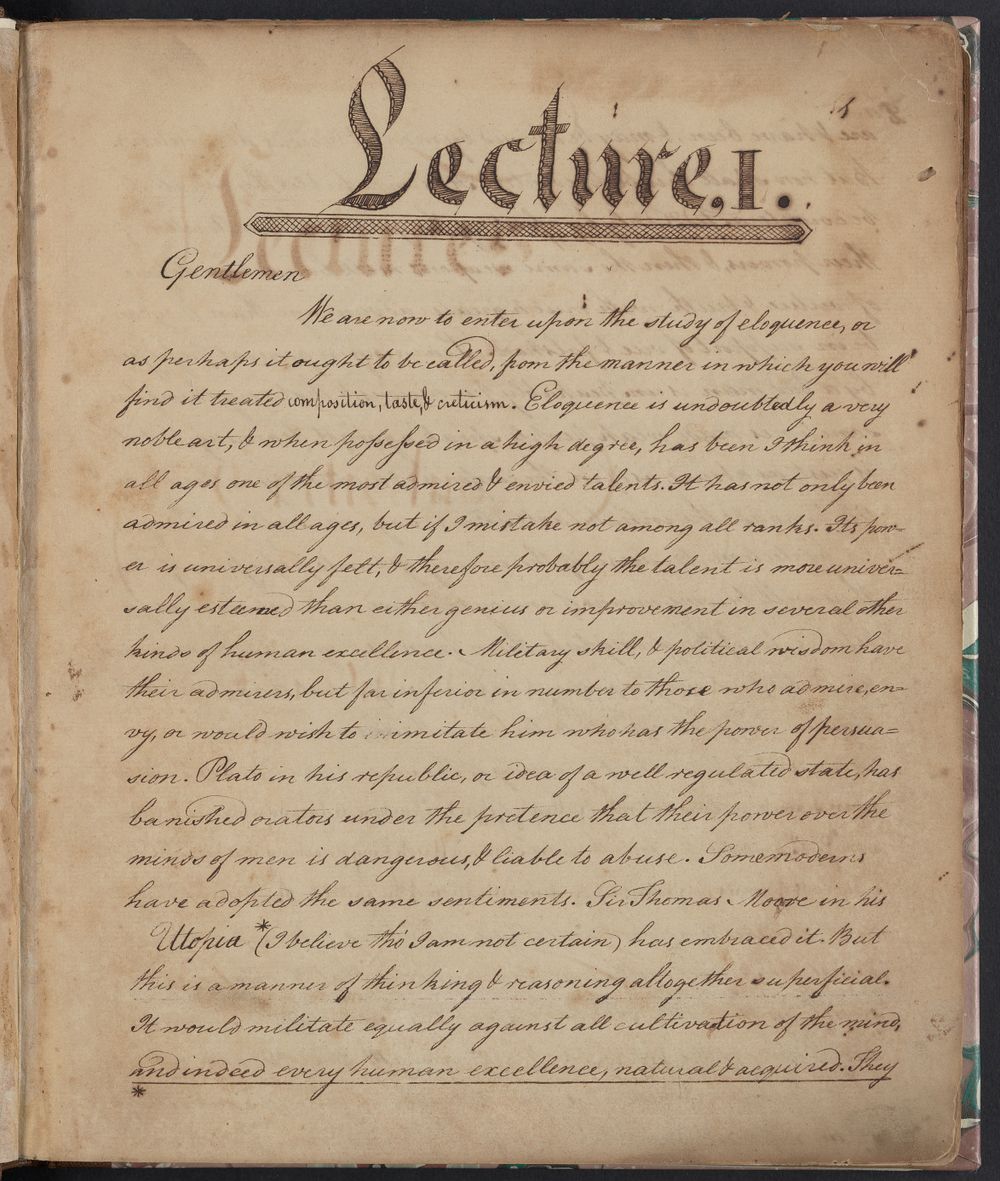 Lecture, 1.
Gentlemen
We are now to enter upon the study of eloquence, or
as perhaps it ought to be called, from the manner in which you will
find it treated composition, taste, & creticism. Eloquence is undoubtedly a very
noble art, & when possessed in a high degree, has been I think in
all ages one of the most admired & envied talents. It has not only been
admired in all ages, but if I mistake not among all ranks. Its pow=
er is universally felt, & therefore probably the talent is more univer=
sally esteemed than either genius or improvement in several other
kinds of human excellence. Military skill, & political wisdom have
their admirers, but far inferior in number to those who admire, en=
vy, or would wish to imitate him who has the power of persua=
sion. Plato in his republic, or idea of a well regulated state, has
banished orators under the pretence that their power over the
minds of men is dangerous, & liable to abuse. Some moderns
have adopted the same sentiments. Sir Thomas Moore in his
Utopia * (I believe tho' I am not certain) has embraced it. But
this is a manner of thinking & reasoning altogether superficial.
It would militate equally against all cultivation of the mind,
and indeed every human excellence, natural & acquired. They
*